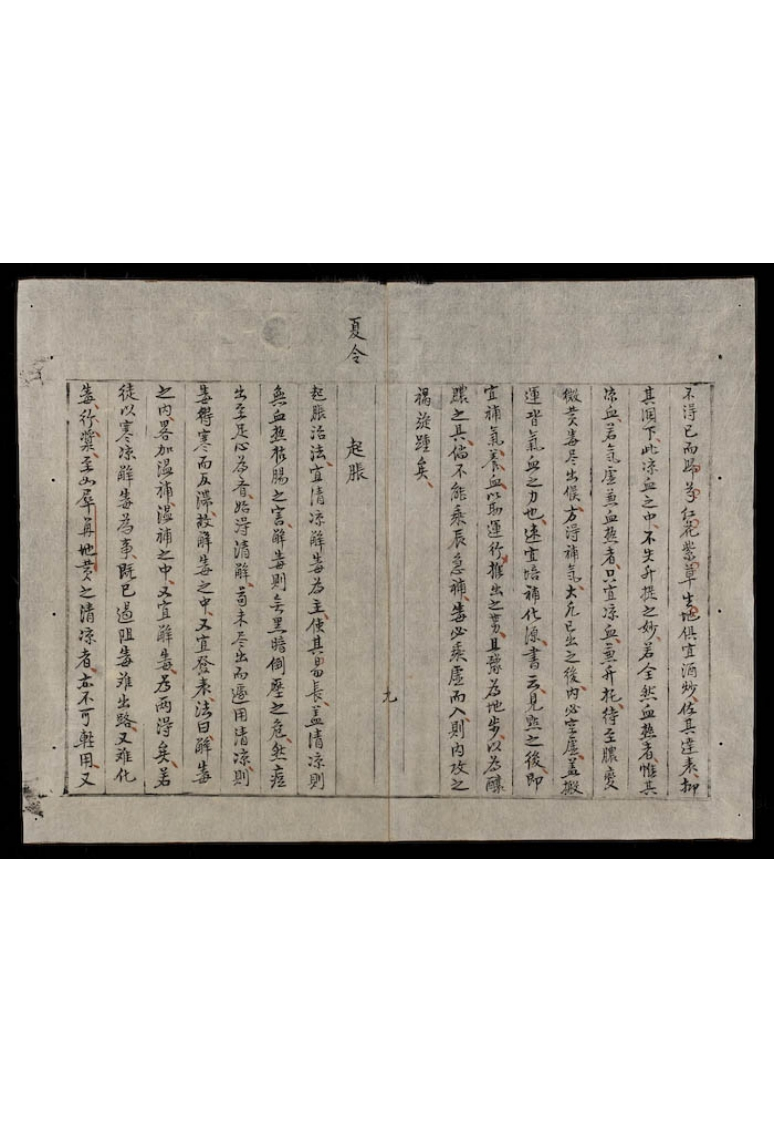 不得已而歸芎紅花紫草生地俱宜酒炒佐其達表抑
其潤下此凉血之中不失升提之妙若全然血熱者惟其
凉血若氣虛兼血熱者只宜凉血無升托待至膿變
微黄毒尽出候方淂補氣大凢已出之後内必空虛盖搬
運皆氣血之力也速宜培補化源書云見㸃之後即
宜補氣養血以助運行推出之势且豫為地歩以為釀
膿之具倘不能乘辰急補毒必乘虛而入則内攻之
禍旋踵矣
九
夏令
起脹
起脹治法宜清凉解毒為主使其易長盖清凉則
無血熱枯腸之害解毒則无黑暗倒壓之危然痘
出至足心為齊始淂清解苟未尽出而遽用清凉則
毒得寒而反滯故解毒之中又宜發表法曰解毒
之内畧加温補温補之中又宜解毒為两淂矣若
徒以寒凉解毒為事既已遏阻毒难出路又难化
毒行漿至如犀角地黄之清凉者亦不可輕用又